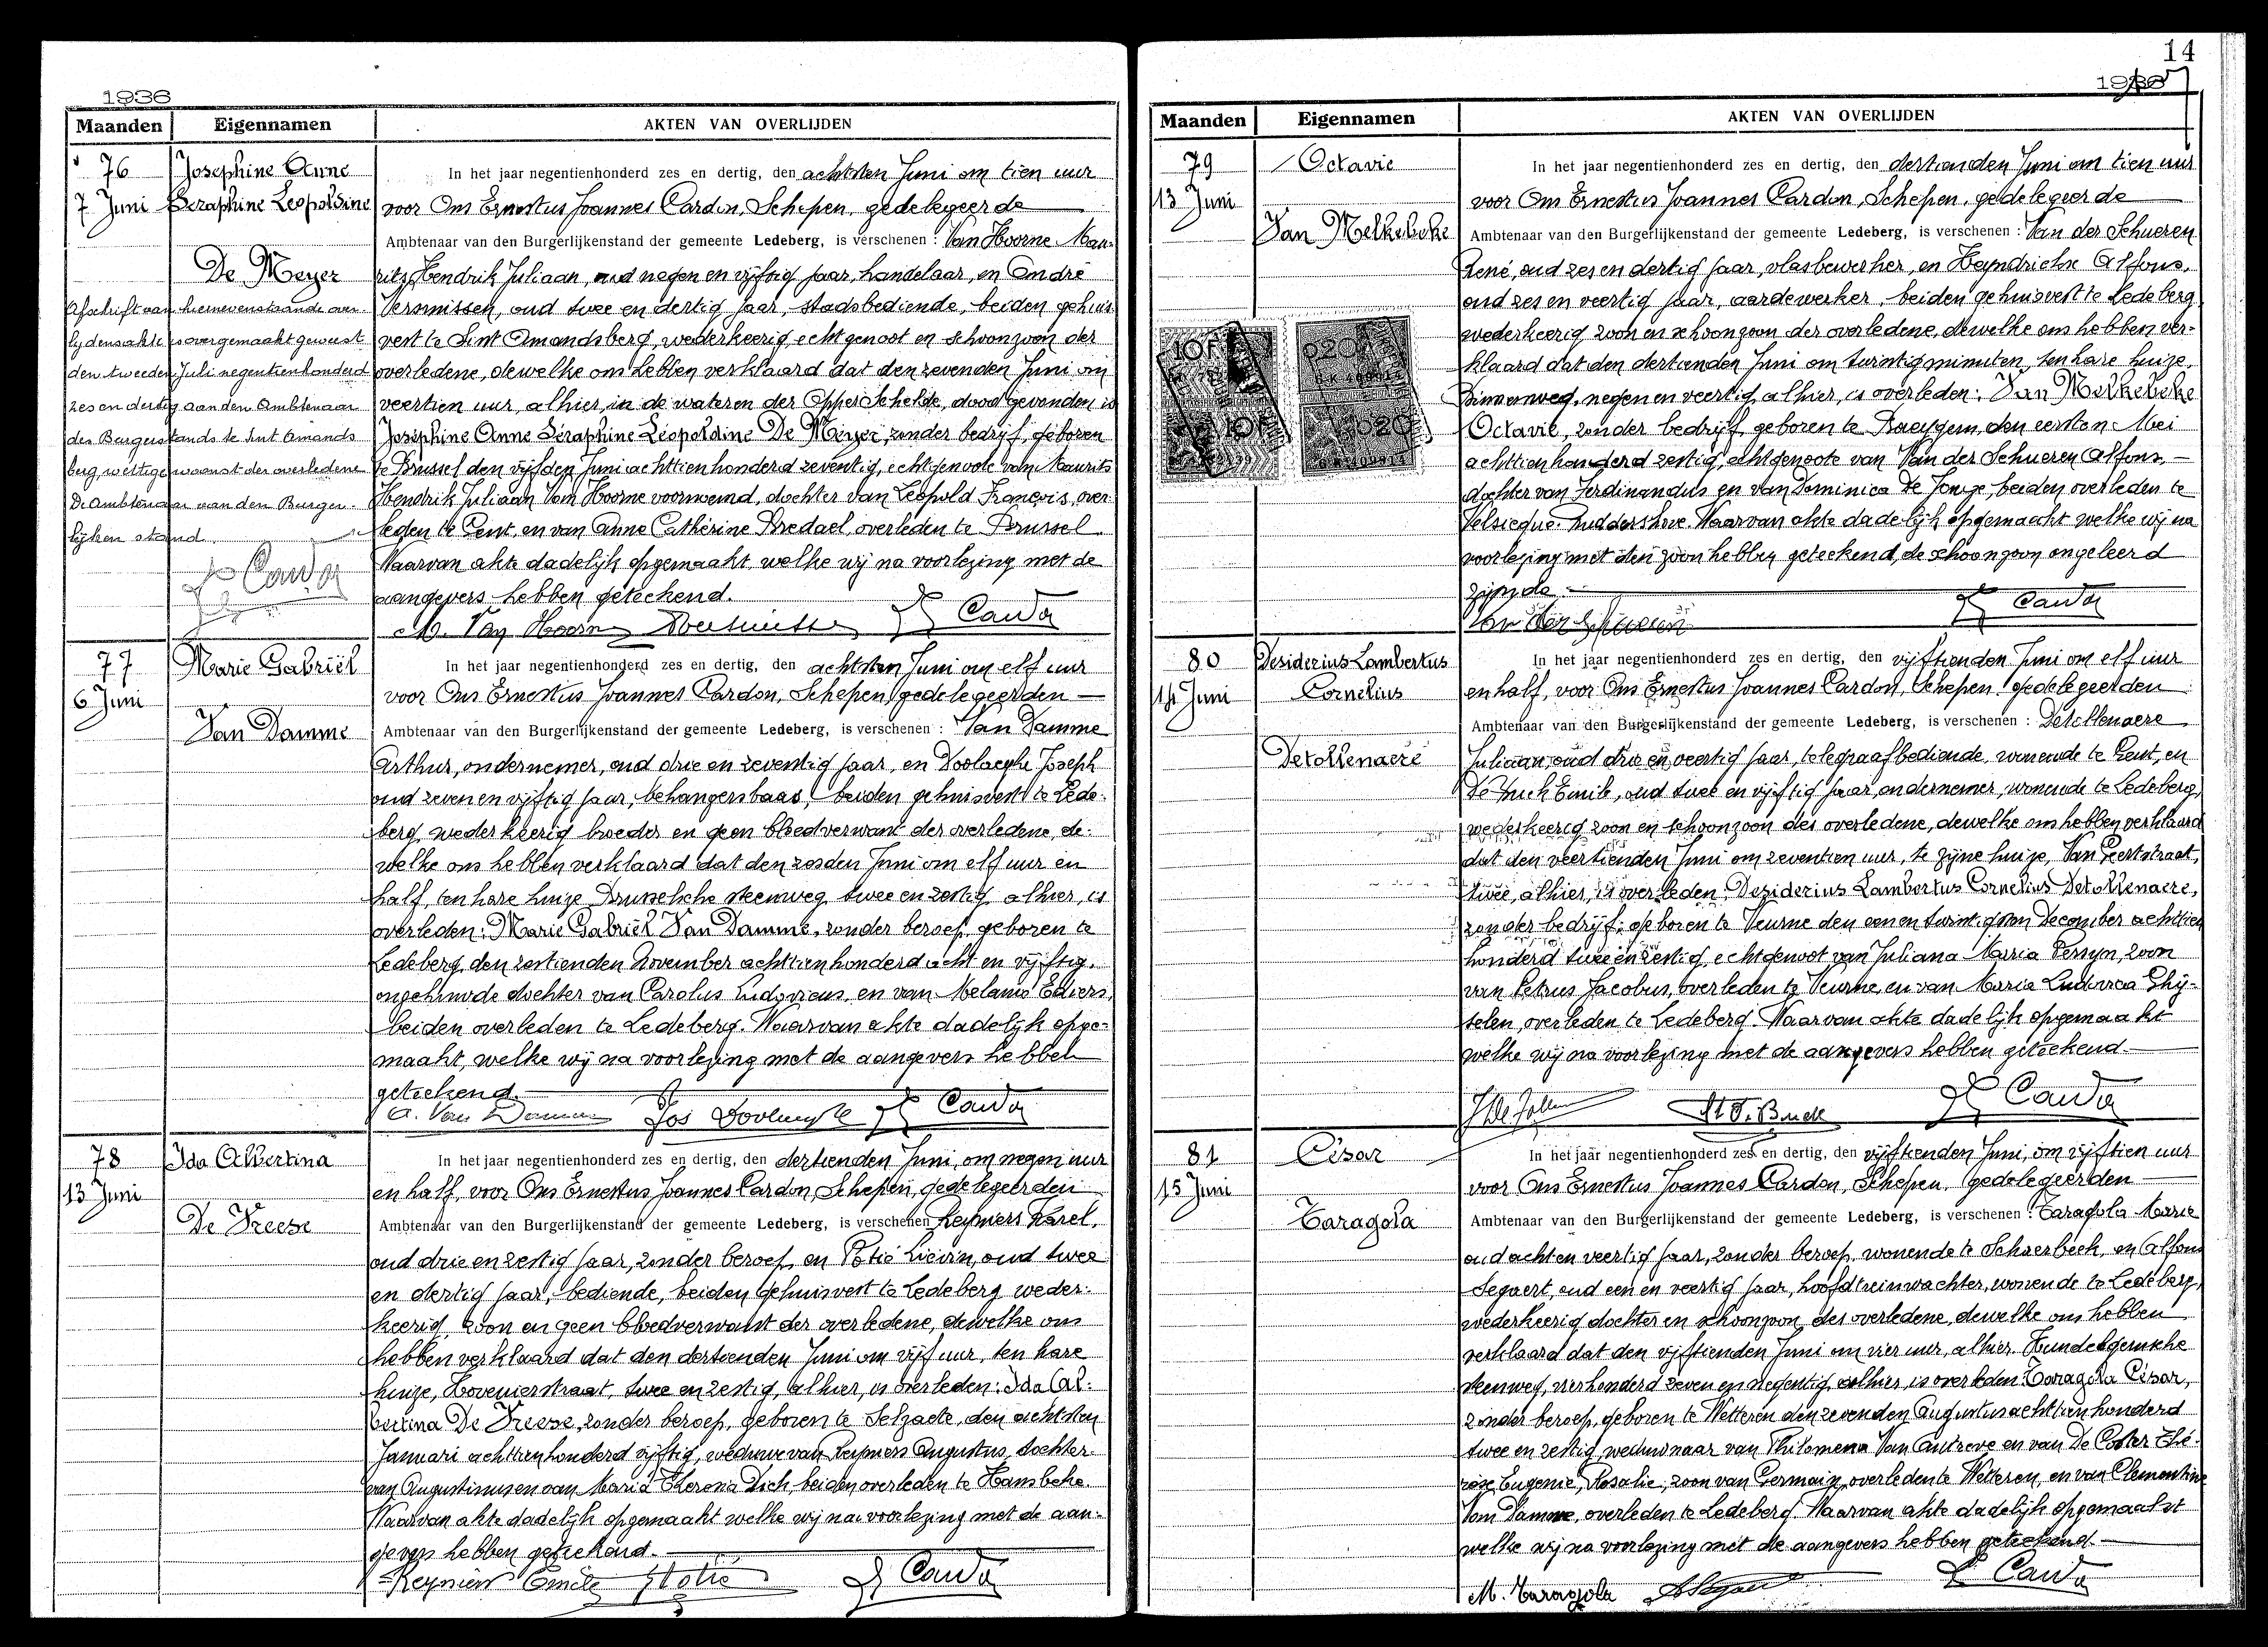 1936
Maanden Eigennamen AKTEN VAN OVERLIJDEN
76 Josephine Anne
7 Juni Seraphine Leopoldine
De Meyer
Afschrift van hiernevenstaande over-
lijdensakte is overgemaakt geweest
den tweeden Juli negentienhonderd
zes en dertig aan den Ambtenaar
des Burgerstands te Sint Amands
berg, wettige woonst der overledene
De Ambtenaar van den Burger-
lijken stand.
In het jaar negentienhonderd zes en dertig, den achtsten Juni om tien uur
voor Ons Ernestus Joannes Cardon, Schepen, gedelegeerde
Ambtenaar van den Burgerlijkenstand der gemeente Ledeberg, is verschenen : Van Hoorne Mau-
rits Hendrik Juliaan, oud negen en vijftig jaar, handelaar, en André
Vermissen, oud twee en dertig jaar, stadsbediende, beiden gehuis-
vest te Sint Amandsberg, wederkeerig echtgenoot en schoonzoon der
overledene, dewelke ons hebben verklaard dat den zevenden Juni om
veertien uur, alhier, in de wateren der Opper Schelde, dood gevonden is
Joséphine Anne Séraphine Léopoldine De Meyer, zonder bedrijf, geboren
te Brussel den vijfden Juni achttienhonderd zeventig, echtgenoote van Maurits
Hendrik Juliaan Van Hoorne voornoemd, dochter van Leopold François, over-
leden te Gent, en van Anne Cathérine Bredael, overleden te Brussel
Waarvan akte dadelijk opgemaakt, welke wij na voorlezing met de
aangevers hebben geteekend.
M. Van Hoorne
77 Marie Gabriël
6 Juni
Van Damme
In het jaar negentienhonderd zes en dertig, den achtsten Juni om elf uur
voor Ons Ernestus Joannes Cardon, Schepen, gedelegeerden
Ambtenaar van den Burgerlijkenstand der gemeente Ledeberg, is verschenen : Van Damme
Arthur, ondernemer, oud drie en zeventig jaar, en Doolaeghe Joseph
oud zeven en vijftig jaar, behangersbaas, beiden gehuisvest te Lede-
berg, wederkeerig broeder en geen bloedverwant der overledene, de-
welke ons hebben verklaard dat den zesden Juni om elf uur en
half, ten hare huize Brusselsche steenweg twee en zestig alhier, is
overleden: Marie Gabriël Van Damme, zonder beroep, geboren te
Ledeberg, den zestienden November achttienhonderd acht en vijftig,
ongehuwde dochter van Carolus Ludovicus, en van Melanie
beiden overleden te Ledeberg. Waarvan akte dadelijk opge-
maakt, welke wij na voorlezing met de aangevers hebben
geteekend.
A. Van Damme
78 Ida Albertina
13 Juni
De Vreese
In het jaar negentienhonderd zes en dertig, den dertienden Juni, om negen uur
en half, voor Ons Ernestus Joannes Cardon, Schepen, gedelegeerden
Ambtenaar van den Burgerlijkenstand der gemeente Ledeberg, is verschenen Reyniers Karel,
oud drie en zestig jaar, zonder beroep, en Potié Liévin, oud twee
en dertig jaar, bediende, beiden gehuisvest te Ledeberg weder-
keerig, zoon en geen bloedverwant der overledene, dewelke ons
hebben verklaard dat den dertienden Juni om vijf uur, ten hare
huize, Hovenierstraat, twee en zestig, alhier, is overleden: Ida Al-
bertina De Vreese, zonder beroep, geboren te Selzaete, den achtsten
Januari achttienhonderd vijftig, weduwe van Reyniers Augustus, dochter
van Augustinus en van Maria Theresia Dich, beiden overleden te Hansbeke.
Waarvan akte dadelijk opgemaakt welke wij na voorlezing met de aan-
gevers hebben geteekend.
14
1936
Maanden Eigennamen AKTEN VAN OVERLIJDEN
79 Octavie
13 Juni
Van Melkebeke
In het jaar negentienhonderd zes en dertig, den dertienden Juni om tien uur
voor Ons Ernestus Joannes Cardon, Schepen, gedelegeerde
Ambtenaar van den Burgerlijkenstand der gemeente Ledeberg, is verschenen : Van der Schueren
René, oud zes en dertig jaar, vlasbewerker, en Heyndrickx Alfons,
oud zes en veertig jaar, aardewerker, beiden gehuisvest te Ledeberg
wederkeerig zoon en schoonzoon der overledene, dewelke ons hebben ver-
klaard dat den dertienden Juni om twintig minuten, ten hare huize,
Binnenweg, negen en veertig, alhier, is overleden: Van Melkebeke
Octavie, zonder bedrijf, geboren te Baeygem, den eersten Mei
achttienhonderd zestig, echtgenoote van Van der Schueren Alfons,
dochter van Ferdinandus en van Dominica De Jonge, beiden overleden te
Velsicque-Ruddershove. Waarvan akte dadelijk opgemaakt welke wij na
voorlezing met den zoon hebben geteekend, de schoonzoon ongeleerd
zijnde.
Van der Schueren
80 Desiderius Lambertus
14 Juni Cornelius
Detollenaere
In het jaar negentienhonderd zes en dertig, den vijftienden Juni om elf uur
en half, voor Ons Ernestus Joannes Cardon, Schepen, gedelegeerden
Ambtenaar van den Burgerlijkenstand der gemeente Ledeberg, is verschenen : Detollenaere
Juliaan, oud drie en veertig jaar, telegraafbediende, wonende te Gent, en
De Buck Emile, oud twee en vijftig jaar, ondernemer, wonende te Ledeberg,
wederkeerig zoon en schoonzoon des overledene, dewelke ons hebben verklaard
dat den veertienden Juni om zeventien uur, te zijne huize, Van Eertstraat,
twee, alhier, is overleden Desiderius Lambertus Cornelius Detollenaere,
zonder bedrijf, geboren te Veurne den een en twintigsten December achttien
honderd twee en zestig, echtgenoot van Juliana Maria Persyn, zoon
van Petrus Jacobus, overleden te Veurne, en van Maria Ludovica Ghy-
selen, overleden te Ledeberg. Waarvan akte dadelijk opgemaakt
welke wij na voorlezing met de aangevers hebben geteekend.
81 César
15 Juni
Taragola
In het jaar negentienhonderd zes en dertig, den vijftienden Juni, om vijftien uur
voor Ons Ernestus Joannes Cardon, Schepen, gedelegeerden
Ambtenaar van den Burgerlijkenstand der gemeente Ledeberg, is verschenen : Taragola Marie
oud acht en veertig jaar, zonder beroep, wonende te Schaerbeek, en Alfons
Segaert, oud een en veertig jaar, hoofdtreinwachter, wonende te Ledeberg,
wederkeerig dochter en schoonzoon des overledene, dewelke ons hebben
verklaard dat den vijftienden Juni om vier uur, alhier, Hundelgemsche
steenweg, vierhonderd zeven en negentig, alhier, is overleden: Taragola César,
zonder beroep, geboren te Wetteren den zevenden Augustus achttienhonderd
twee en zestig, weduwnaar van Philomena Van Autreve en van De Coster Thé-
rèse, Eugenie, Rosalie, zoon van Germain, overleden te Wetteren, en van Clementine
Van Damme, overleden te Ledeberg. Waarvan akte dadelijk opgemaakt
welke wij na voorlezing met de aangevers hebben geteekend.
M. Taragola